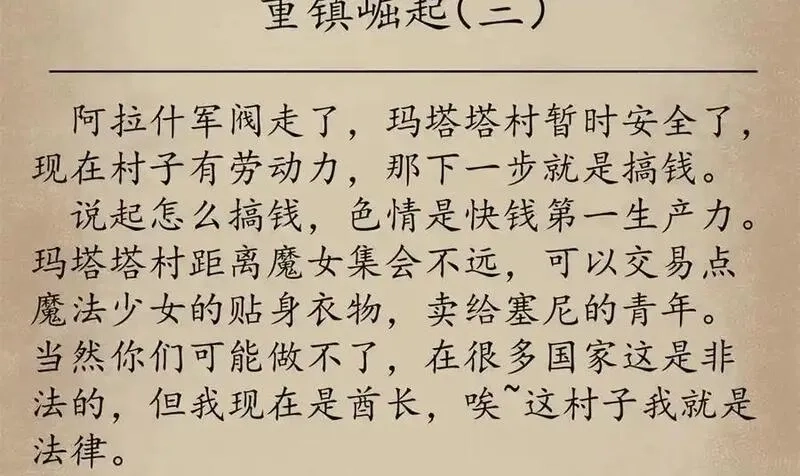 重镇崛起(三)
阿拉什军阀走了，玛塔塔村暂时安全了，
现在村子有劳动力，那下一步就是搞钱。
说起怎么搞钱，色情是快钱第一生产力。
玛塔塔村距离魔女集会不远，可以交易点
魔法少女的贴身衣物，卖给塞尼的青年。
当然你们可能做不了，在很多国家这是非
法的，但我现在是酋长，唉~这村子我就是
法律。